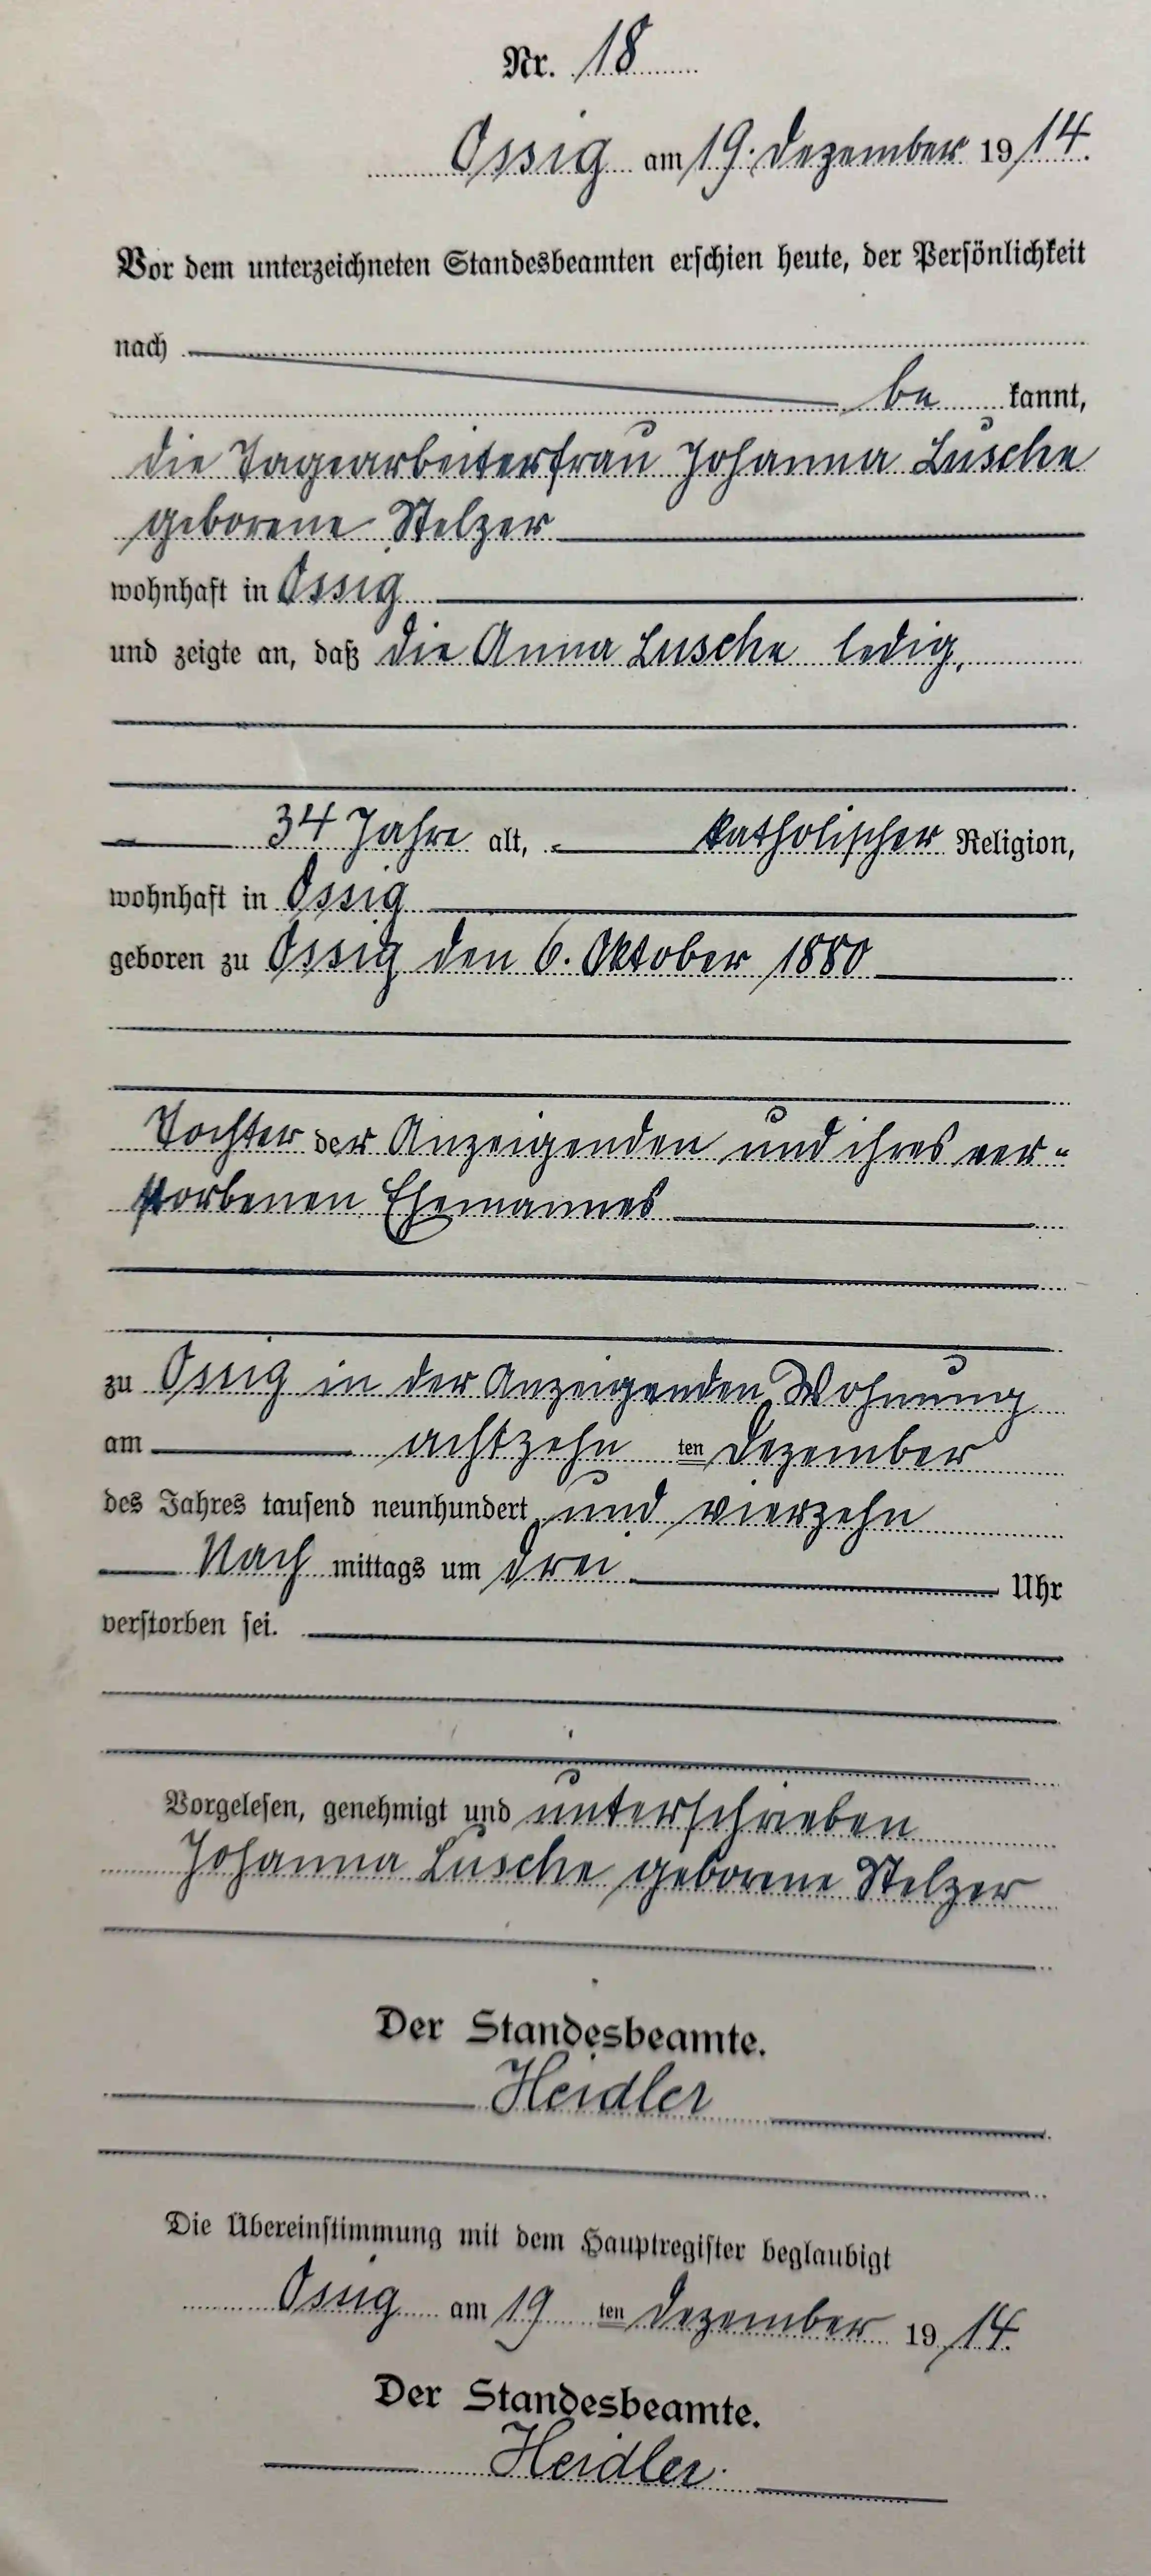 Nr. 18
Ossig am 19. Dezember 19 14.
Vor dem unterzeichneten Standesbeamten erschien heute, der Persönlichkeit
nach
be kannt,
die Tagearbeiterfrau Johanna Lusche
geborene Stelzer
wohnhaft in Ossig
und zeigte an, daß die Anna Lusche ledig,
34 Jahre alt, katholischer Religion,
wohnhaft in Ossig
geboren zu Ossig den 6. Oktober 1880
Tochter der Anzeigenden und ihres ver-
storbenen Ehemannes
zu Ossig in der Anzeigenden Wohnung
am achtzehn ten Dezember
des Jahres tausend neunhundert und vierzehn
Nach mittags um drei Uhr
verstorben sei.
Vorgelesen, genehmigt und unterschrieben
Johanna Lusche geborene Stelzer
Der Standesbeamte.
Heidler
Die Übereinstimmung mit dem Hauptregister beglaubigt
Ossig am 19 ten Dezember 19 14.
Der Standesbeamte.
Heidler.